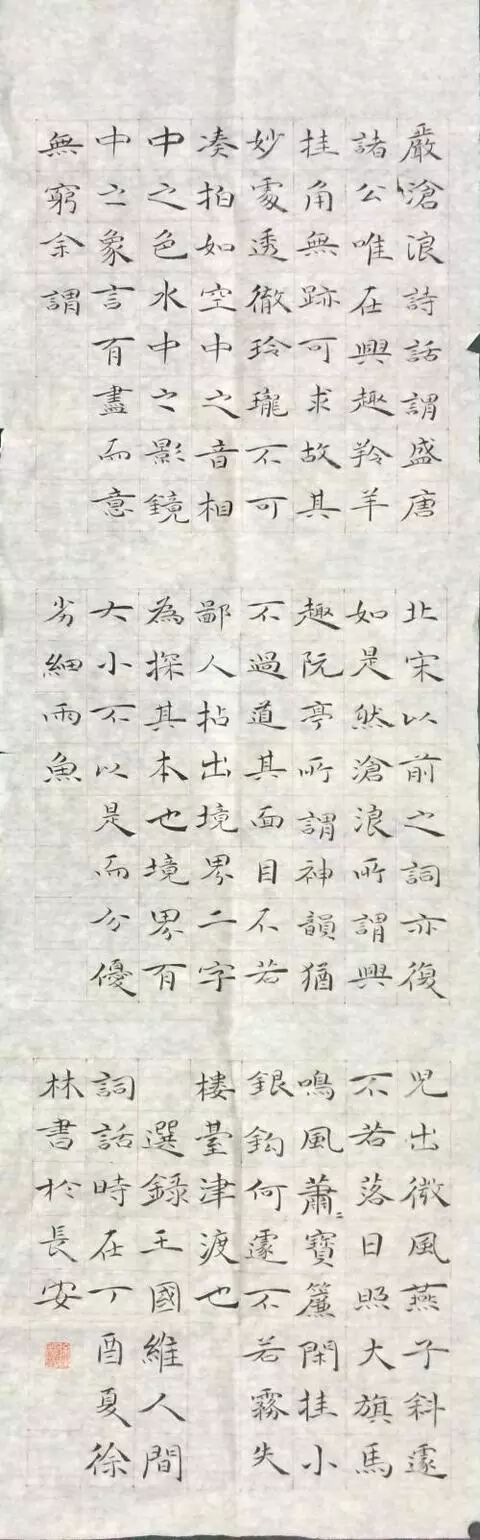 嚴滄浪詩話謂盛唐
諸公唯在興趣羚羊
挂角無跡可求故其
妙處透徹玲瓏不可
凑拍如空中之音相
中之色水中之影鏡
中之象言有盡而意
無窮余謂
北宋以前之詞亦復
如是然滄浪所謂興
趣阮亭所謂神韻猶
不過道其面目不若
鄙人拈出境界二字
為探其本也境界有
大小不以是而分優
劣細雨魚
兒出微風燕子斜遽
不若落日照大旗馬
鳴風蕭〻寶簾閑挂小
銀鈎何遽不若霧失
樓臺津渡也
選錄王國維人間
詞話時在丁酉夏徐
林書於長安